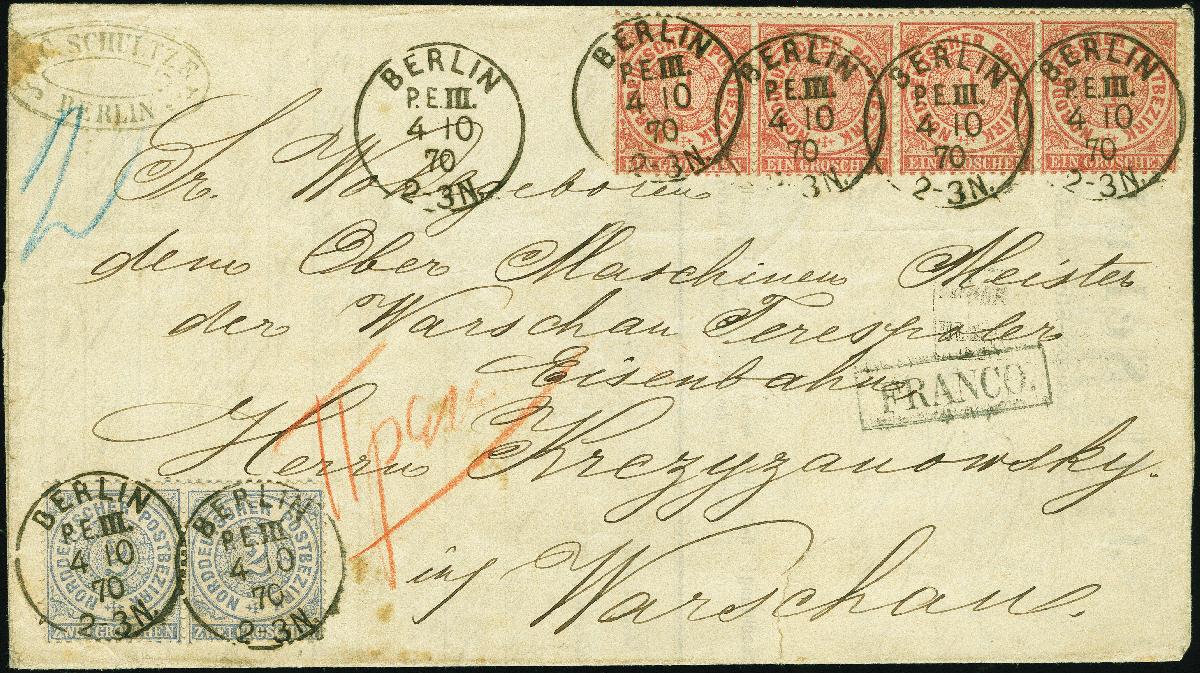 C. SCHULTZE
BERLIN
2
BERLIN
P.E.III.
4 10
70
2-3N.
BERLIN
P.E.III.
4 10
70
2-3N.
BERLIN
P.E.III.
4 10
70
3N.
BERLIN
P.E.III.
4 10
70
2-3N.
BERLIN
P.E.III.
4 10
70
2-3N.
NORDDEUTSCHER POSTBEZIRK
EIN GROSCHEN
NORDDEUTSCHER POSTBEZIRK
EIN GROSCHEN
NORDDEUTSCHER POSTBEZIRK
EIN GROSCHEN
NORDDEUTSCHER POSTBEZIRK
EIN GROSCHEN
Sr. Wohlgeboren
dem Ober Maschinen Meister
der Warschau Terespoler
Eisenbahn
FRANCO.
Herrn Krezyzanowsky.
in Warschau.
BERLIN
P.E.III.
4 10
70
2-3N.
BERLIN
P.E.III.
4 10
70
2-3N.
NORDDEUTSCHER POSTBEZIRK
2
ZWEI GROSCHEN
NORDDEUTSCHER POSTBEZIRK
2
ZWEI GROSCHEN